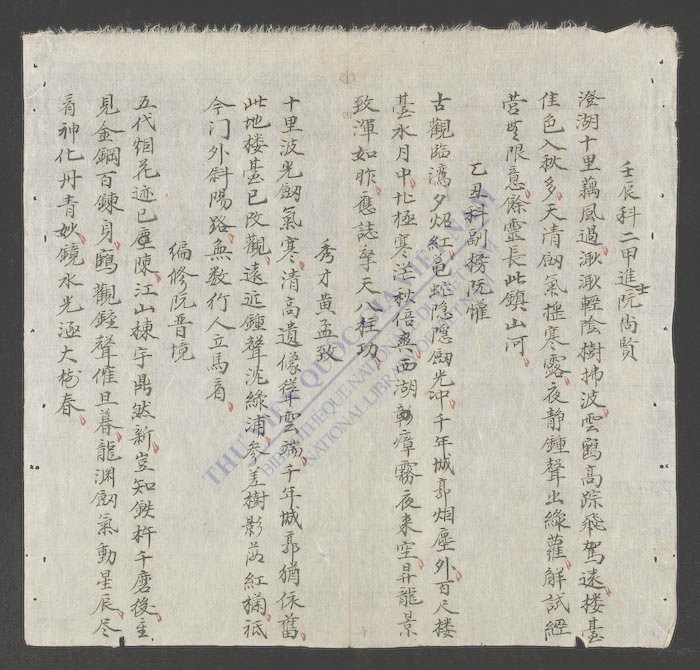 壬辰科二甲進士阮尚賢
澄湖十里藕風過湙湙輕陰樹拂波雲鶴高踪飛駕遠楼臺
佳色入秋多天清劒氣搖寒露夜靜鍾聲出綠蘿解試經
营無限意餘靈長此鎮山河
乙丑科副榜阮懽
古觀臨濤夕炤紅龟蛇隐隱劒光冲千年城郭烟塵外百尺楼
臺水月中北極寒沍秋倍爽西湖彰瘴霧夜来空昇龍景
致渾如昨應誌擎天八柱功
秀才黄孟致
十里波光劒氣寒清高遺像聳雲端千年城郭猶依舊
此地楼臺已改觀遠近鍾聲沈綠浦參差樹影落紅欄祇
今门外斜陽路無数行人立馬看
編修阮晋境
五代烟花迹已塵陳江山棟宇鼎然新豈知鉄杵千磨後重
見金鋼百鍊身鶴觀鍾聲催旦暮龍渊劒氣動星辰尽
看神化丹青妙鏡水光涵大地春
THƯ VIỆN QUỐC GIA VIỆT NAM
BIBLIOTHEQUE NATIONALE DU VIETNAM
NATIONAL LIBRARY OF VIETNAM